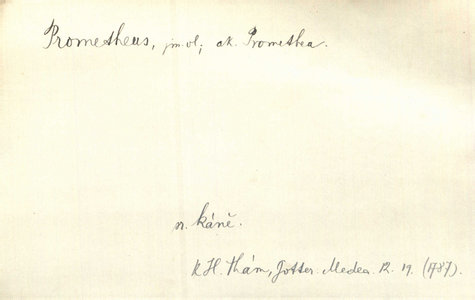 Prometheus, jm. ol; ak. Promethea.
v. káně.
K. H. Thám, Gotter. Medea. 12. 19. (1787).